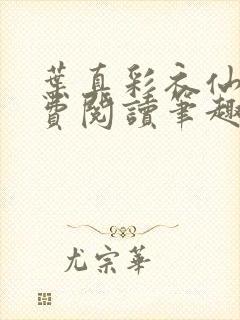 葉真彩衣仙
費閱讀筆趣
尤宗華